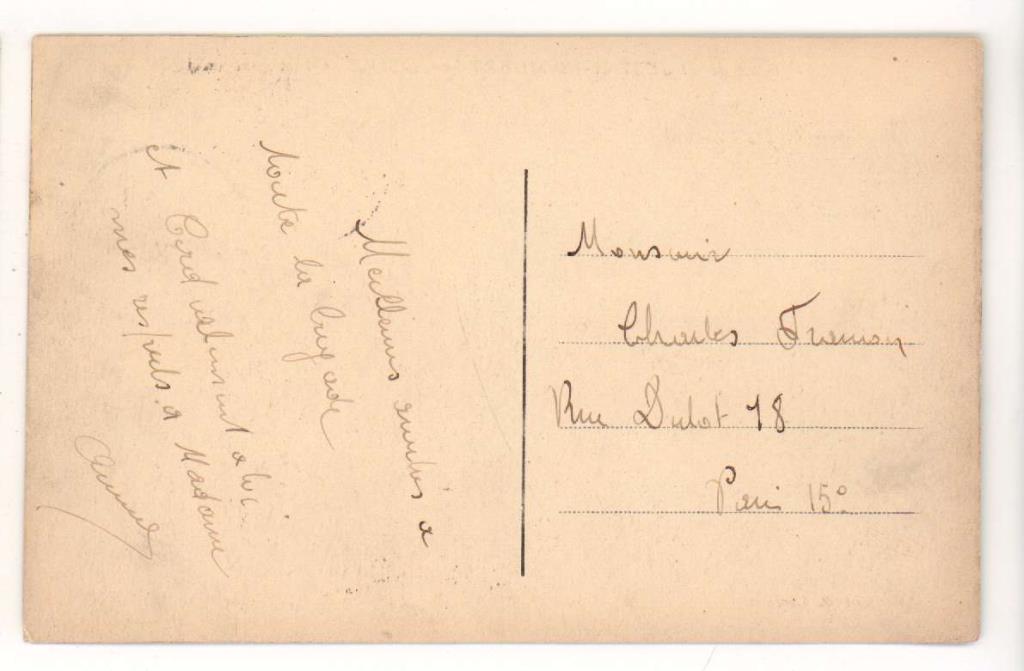 Meilleurs amitiés a
toute la brigade
et Cordialement a toi
mes respects a Madame
Monsieur
Charles
Rue Dulot 18
Paris 15e